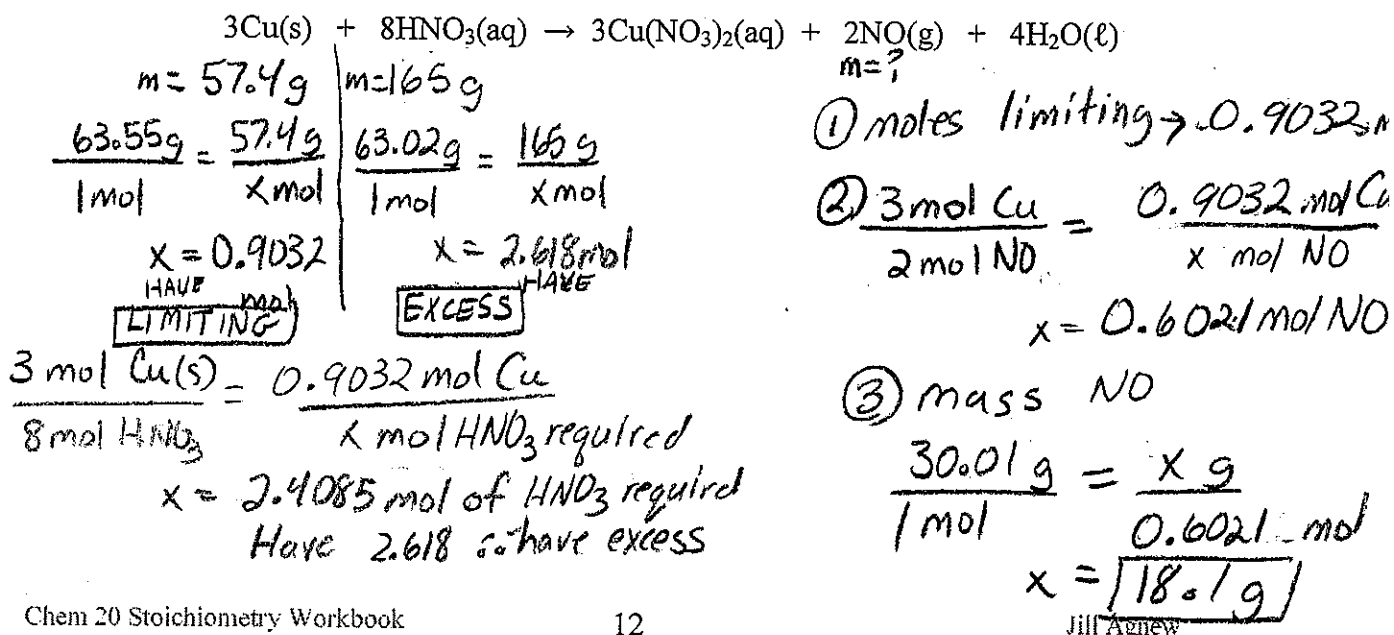 3Cu(s) + 8HNO₃(aq) → 3Cu(NO₃)₂(aq) + 2NO(g) + 4H₂O(ℓ)
m = 57.4g | m=165g
63.55g / 1mol = 57.4g / x mol | 63.02g / 1mol = 165g / x mol
x = 0.9032 mol
HAVE
LIMITING
x = 2.618mol
HAVE
EXCESS
3 mol Cu(s) / 8 mol HNO₃ = 0.9032 mol Cu / x mol HNO₃ required
x = 2.4085 mol of HNO₃ required
Have 2.618 ∴ have excess
m=?
① moles limiting → 0.9032
② 3mol Cu / 2mol NO = 0.9032 mol Cu / x mol NO
x = 0.6021 mol NO
③ mass NO
30.01g / 1mol = x g / 0.6021 mol
x = 18.1g
Chem 20 Stoichiometry Workbook 12 Jill Agnew